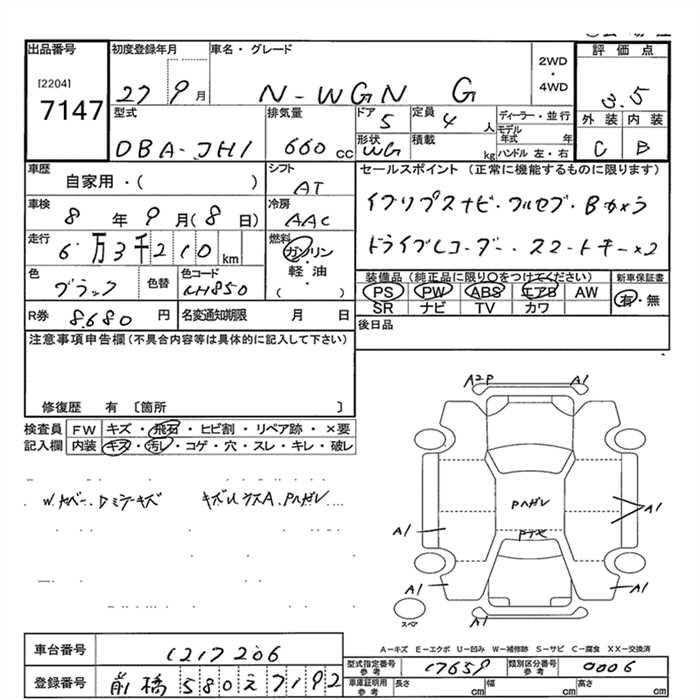 出品番号
[2204]
7147
初度登録年月
27 9月
車名・グレード
N-WGN G
2WD
・
4WD
評価点
3.5
外装 内装
C B
型式
DBA-JH1
排気量
660cc
ドア
5
定員
4人
ディーラー・並行
モデル年式 年
形状
WG
積載
kg
ハンドル 左・右
車歴
自家用・( )
シフト
AT
セールスポイント (正常に機能するものに限ります)
車検
8年9月(8日)
冷房
AAC
ドライブレコーダー、スマートキー×2
走行
6万3千210km
燃料
ガソリン
・
軽・油
( )
色
ブラック
色替
色コード
NH850
装備品(純正品に限り○をつけてください)
新車保証書
PS PW ABS エアB AW
有・無
SR ナビ TV カワ
R券
8.680円
名変通知期限
月 日
後日品
注意事項申告欄(不具合内容等は具体的に記入して下さい)
修復歴 有 〔箇所 〕
検査員
記入欄
FW キズ・飛石・ヒビ割・リペア跡・×要
内装 キズ・汚レ・コゲ・穴・スレ・キレ・破レ
A2P A1
Pハガレ
A1
A1
A1
A1
A1
スペ
A-キズ E-エクボ U-凹み W-補修跡 S-サビ C-腐食 XX-交換済
車台番号
1217206
型式指定番号
参考
17659
類別区分番号
参考
0006
登録番号
前橋 580え7192
車庫証明用
参考
長さ cm
幅 cm
高さ cm